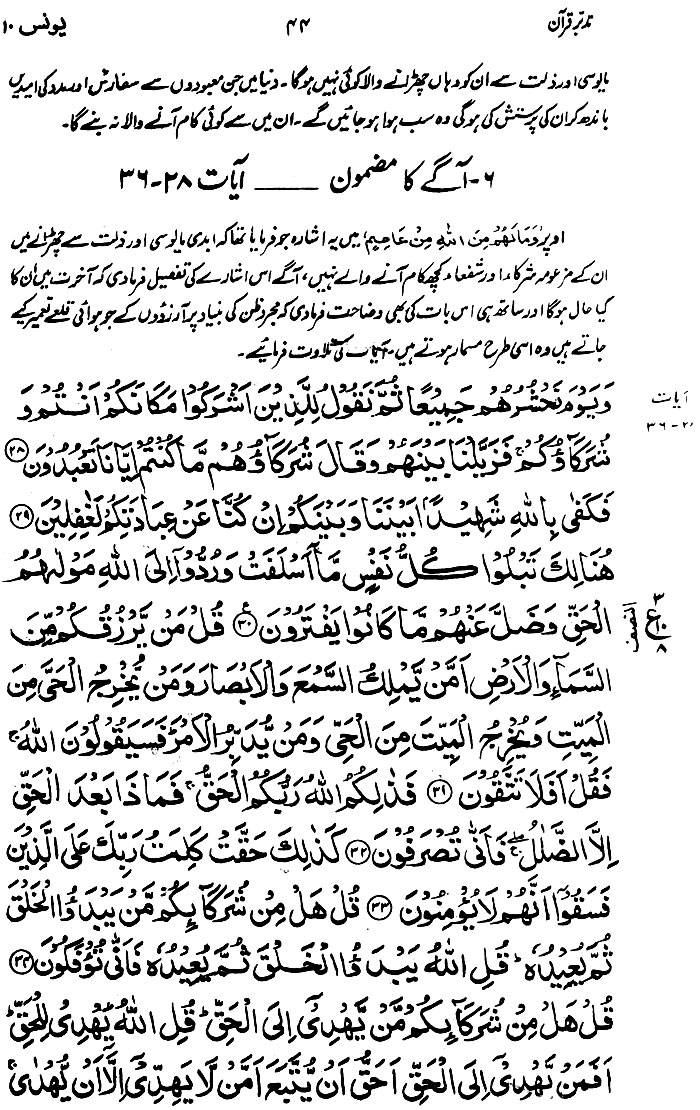 تدبرِ قرآن ۴۴ یونس ۱۰
مایوسی اور ذلت سے ان کو وہاں چھڑانے والا کوئی نہیں ہوگا۔ دنیا میں جن معبودوں سے سفارش اور مدد کی امیدیں
باندھ کر ان کی پرستش کی ہوگی وہ سب ہوا ہو جائیں گے۔ ان میں سے کوئی کام آنے والا نہ بنے گا۔
۶۔ آگے کا مضمون ــــــ آیات ۲۸-۳۶
اوپر ’وَمَا لَهُمْ مِنَ اللهِ مِنْ عَاصِمٍ‘ میں یہ اشارہ جو فرمایا تھا کہ ابدی مایوسی اور ذلت سے چھڑانے میں
ان کے مزعومہ شرکاء اور شفعاء کچھ کام آنے والے نہیں، آگے اس اشارے کی تفصیل فرما دی کہ آخرت میں ان کا
کیا حال ہوگا اور ساتھ ہی اس بات کی بھی وضاحت فرما دی کہ مجرد ظن کی بنیاد پر آرزؤوں کے جو ہوائی قلعے تعمیر کیے
جاتے ہیں وہ اسی طرح مسمار ہوتے ہیں۔ آیات کی تلاوت فرمائیے۔
آیات
۲۸-۳۶
وَيَوْمَ نَحْشُرُهُمْ جَمِيعًا ثُمَّ نَقُولُ لِلَّذِينَ اَشْرَكُوْا مَكَانَكُمْ اَنْتُمْ وَ
شُرَكَآؤُكُمْ ۚ فَزَيَّلْنَا بَيْنَهُمْ وَقَالَ شُرَكَآؤُهُمْ مَّا كُنْتُمْ اِيَّانَا تَعْبُدُوْنَ ۲۸
فَكَفٰى بِاللهِ شَهِيْدًا ۢ بَيْنَنَا وَبَيْنَكُمْ اِنْ كُنَّا عَنْ عِبَادَتِكُمْ لَغٰفِلِيْنَ ۲۹
هُنَالِكَ تَبْلُوْا كُلُّ نَفْسٍ مَّآ اَسْلَفَتْ وَرُدُّوْٓا اِلَى اللهِ مَوْلٰىهُمُ
الْحَقِّ وَضَلَّ عَنْهُمْ مَّا كَانُوْا يَفْتَرُوْنَ ۳۰ قُلْ مَنْ يَّرْزُقُكُمْ مِّنَ
النصف ۳ ع ۸
السَّمَآءِ وَالْاَرْضِ اَمَّنْ يَّمْلِكُ السَّمْعَ وَالْاَبْصَارَ وَمَنْ يُّخْرِجُ الْحَيَّ مِنَ
الْمَيِّتِ وَيُخْرِجُ الْمَيِّتَ مِنَ الْحَيِّ وَمَنْ يُّدَبِّرُ الْاَمْرَ ؕ فَسَيَقُوْلُوْنَ اللهُ ۚ
فَقُلْ اَفَلَا تَتَّقُوْنَ ۳۱ فَذٰلِكُمُ اللهُ رَبُّكُمُ الْحَقُّ ۚ فَمَاذَا بَعْدَ الْحَقِّ
اِلَّا الضَّلٰلُ ۖ فَاَنّٰى تُصْرَفُوْنَ ۳۲ كَذٰلِكَ حَقَّتْ كَلِمَتُ رَبِّكَ عَلَى الَّذِيْنَ
فَسَقُوْٓا اَنَّهُمْ لَا يُؤْمِنُوْنَ ۳۳ قُلْ هَلْ مِنْ شُرَكَآئِكُمْ مَّنْ يَّبْدَؤُا الْخَلْقَ
ثُمَّ يُعِيْدُهٗ ؕ قُلِ اللهُ يَبْدَؤُا الْخَلْقَ ثُمَّ يُعِيْدُهٗ فَاَنّٰى تُؤْفَكُوْنَ ۳۴
قُلْ هَلْ مِنْ شُرَكَآئِكُمْ مَّنْ يَّهْدِيْٓ اِلَى الْحَقِّ ؕ قُلِ اللهُ يَهْدِيْ لِلْحَقِّ ؕ
اَفَمَنْ يَّهْدِيْٓ اِلَى الْحَقِّ اَحَقُّ اَنْ يُّتَّبَعَ اَمَّنْ لَّا يَهِدِّيْٓ اِلَّآ اَنْ يُّهْدٰى ۚ